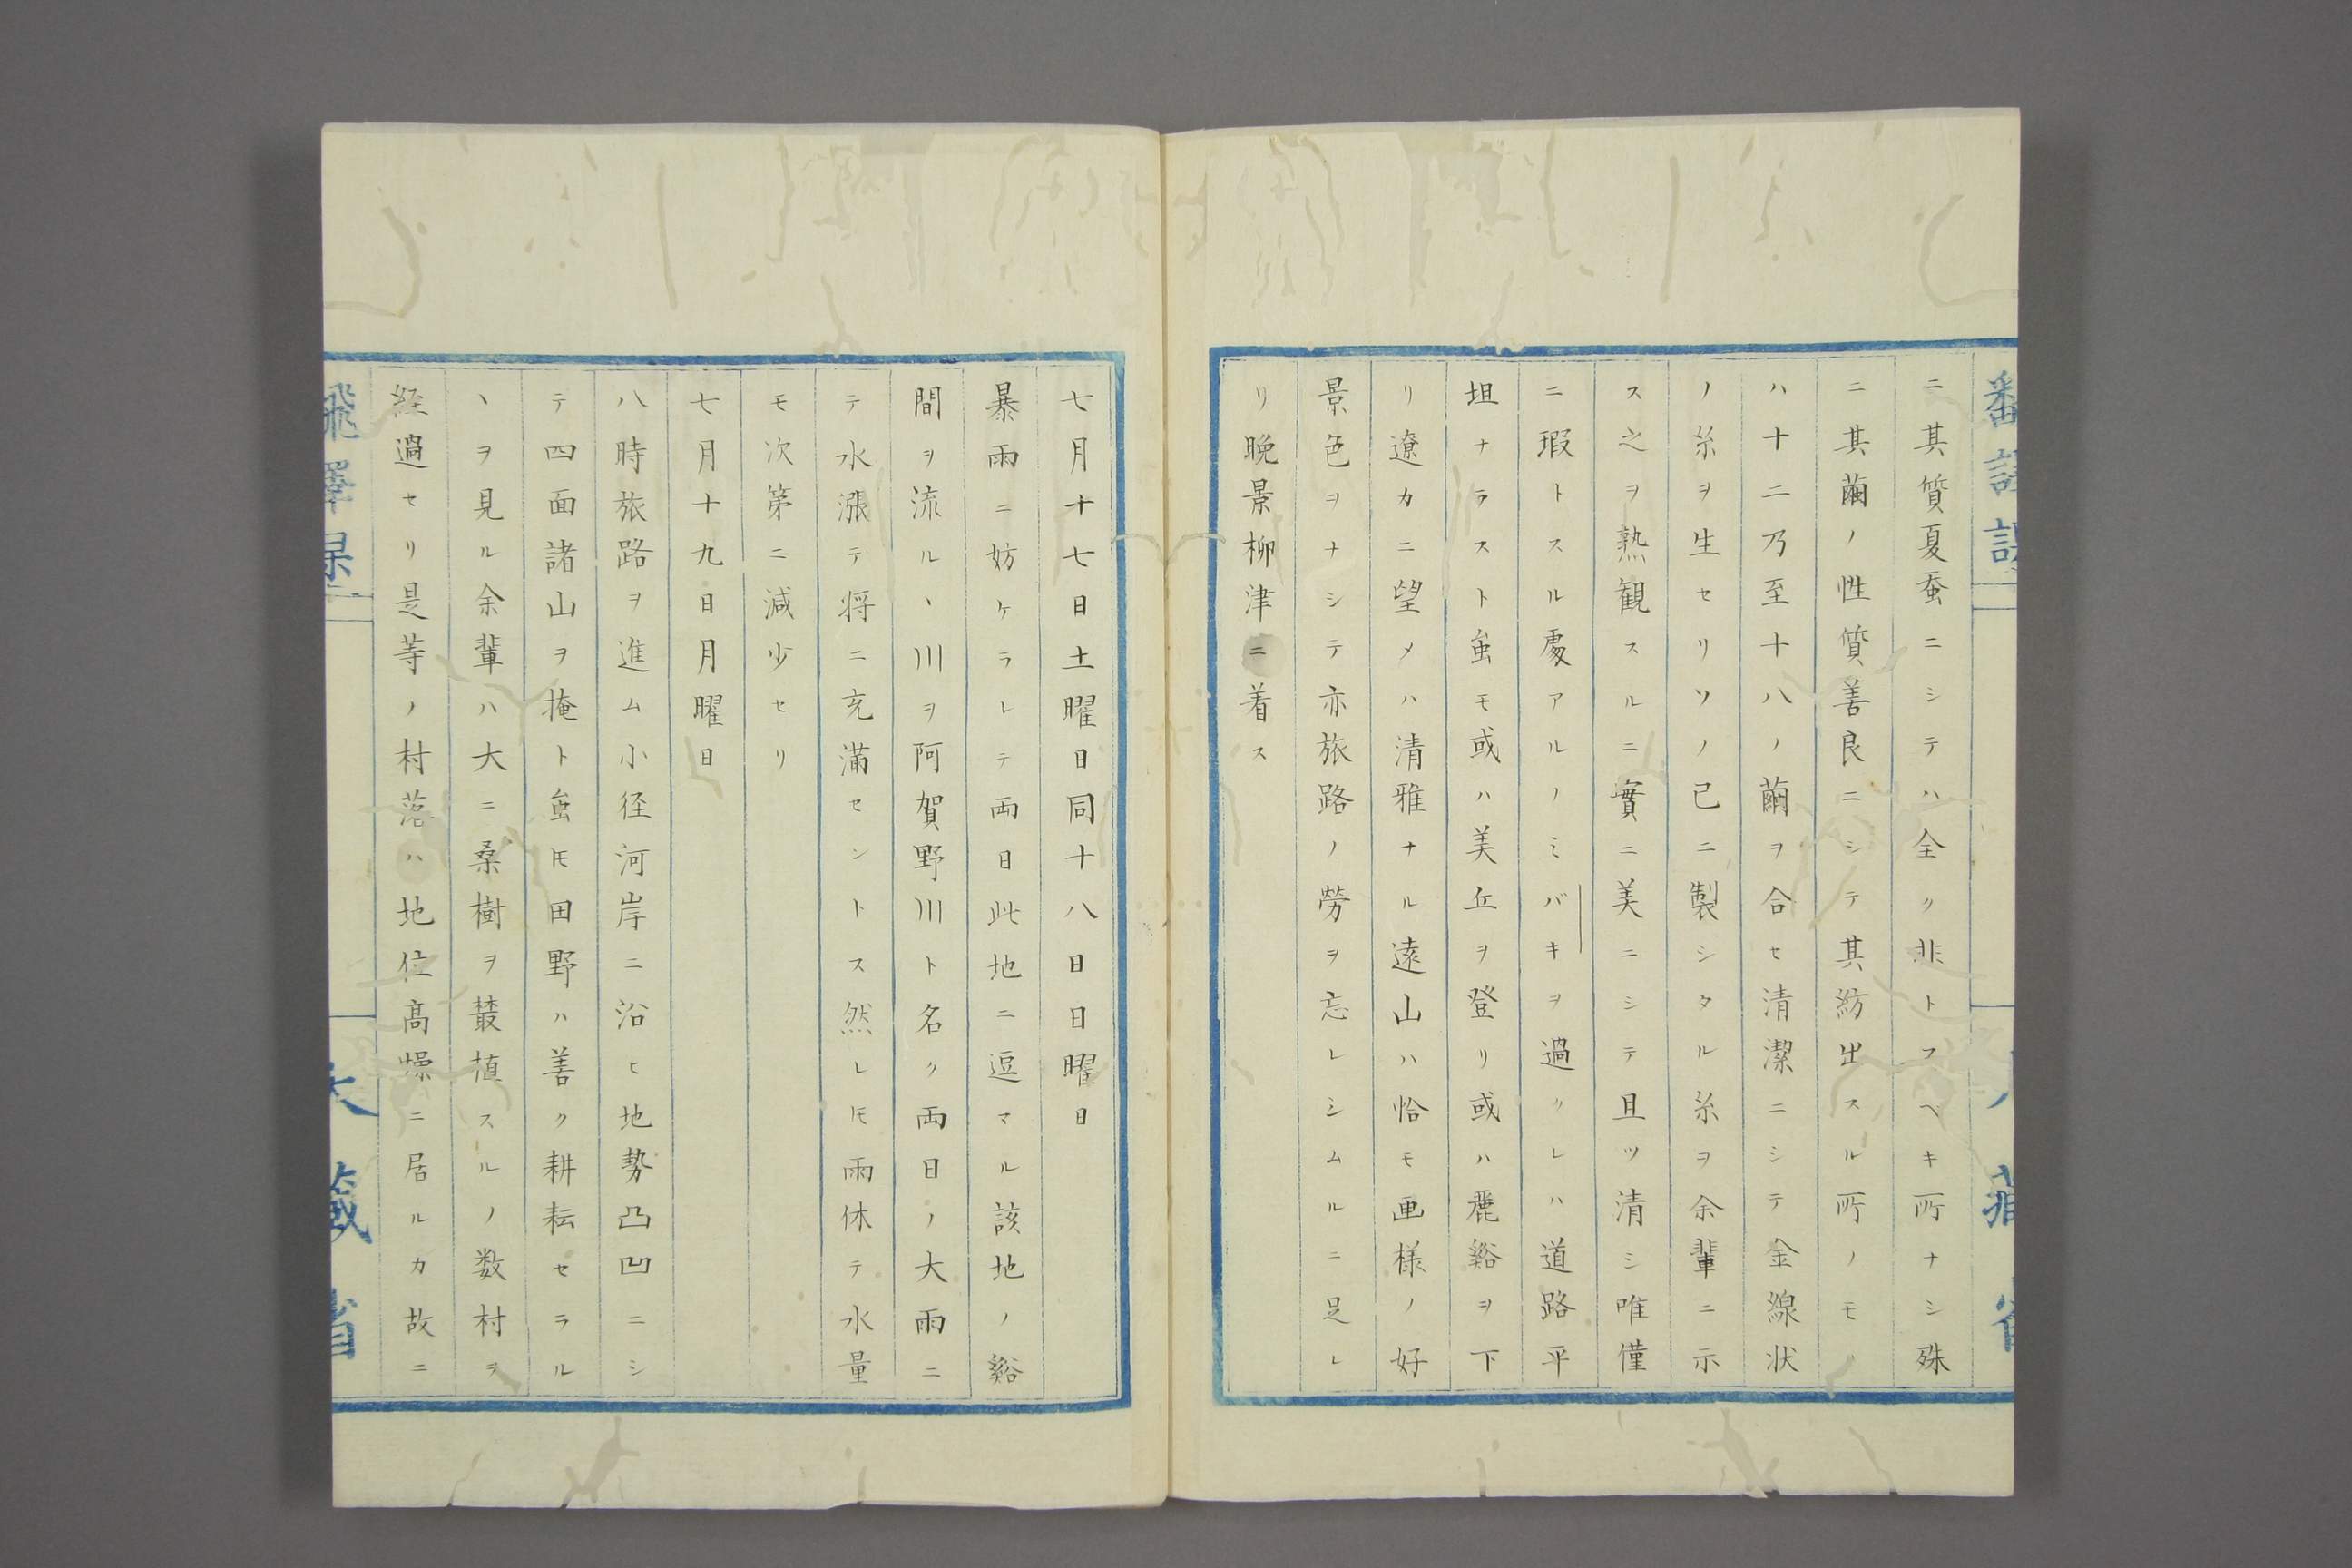 ニ其質夏蚕ニシテハ全ク非トスヘキ所ナシ殊
ニ其繭ノ性質善良ニシテ其紡出スル所ノモノ
ハ十二乃至十八ノ繭ヲ合セ清潔ニシテ金線状
ノ糸ヲ生セリソノ已ニ製シタル糸ヲ余輩ニ示
ス之ヲ熟観スルニ實ニ美ニシテ且ツ清シ唯僅
ニ瑕トスル處アルノミバキヲ過クレハ道路平
坦ナラスト虽モ或ハ美丘ヲ登リ或ハ麗谿ヲ下
リ遼カニ望メハ清雅ナル遠山ハ恰モ画様ノ好
景色ヲナシテ亦旅路ノ労ヲ忘レシムルニ足レ
リ晩景柳津ニ着ス
七月十七日土曜日同十八日日曜日
暴雨ニ妨ケラレテ両日此地ニ逗マル該地ノ谿
間ヲ流ルヽ川ヲ阿賀野川ト名ク両日ノ大雨ニ
テ水漲テ将ニ充満セントス然レ𪜈雨休テ水量
モ次第ニ減少セリ
七月十九日月曜日
八時旅路ヲ進ム小径河岸ニ沿ヒ地勢凸凹ニシ
テ四面諸山ヲ掩ト虽𪜈田野ハ善ク耕耘セラル
ヽヲ見ル余輩ハ大ニ桑樹ヲ叢植スルノ数村ヲ
経過セリ是等ノ村落ハ地位高燥ニ居ルカ故ニ